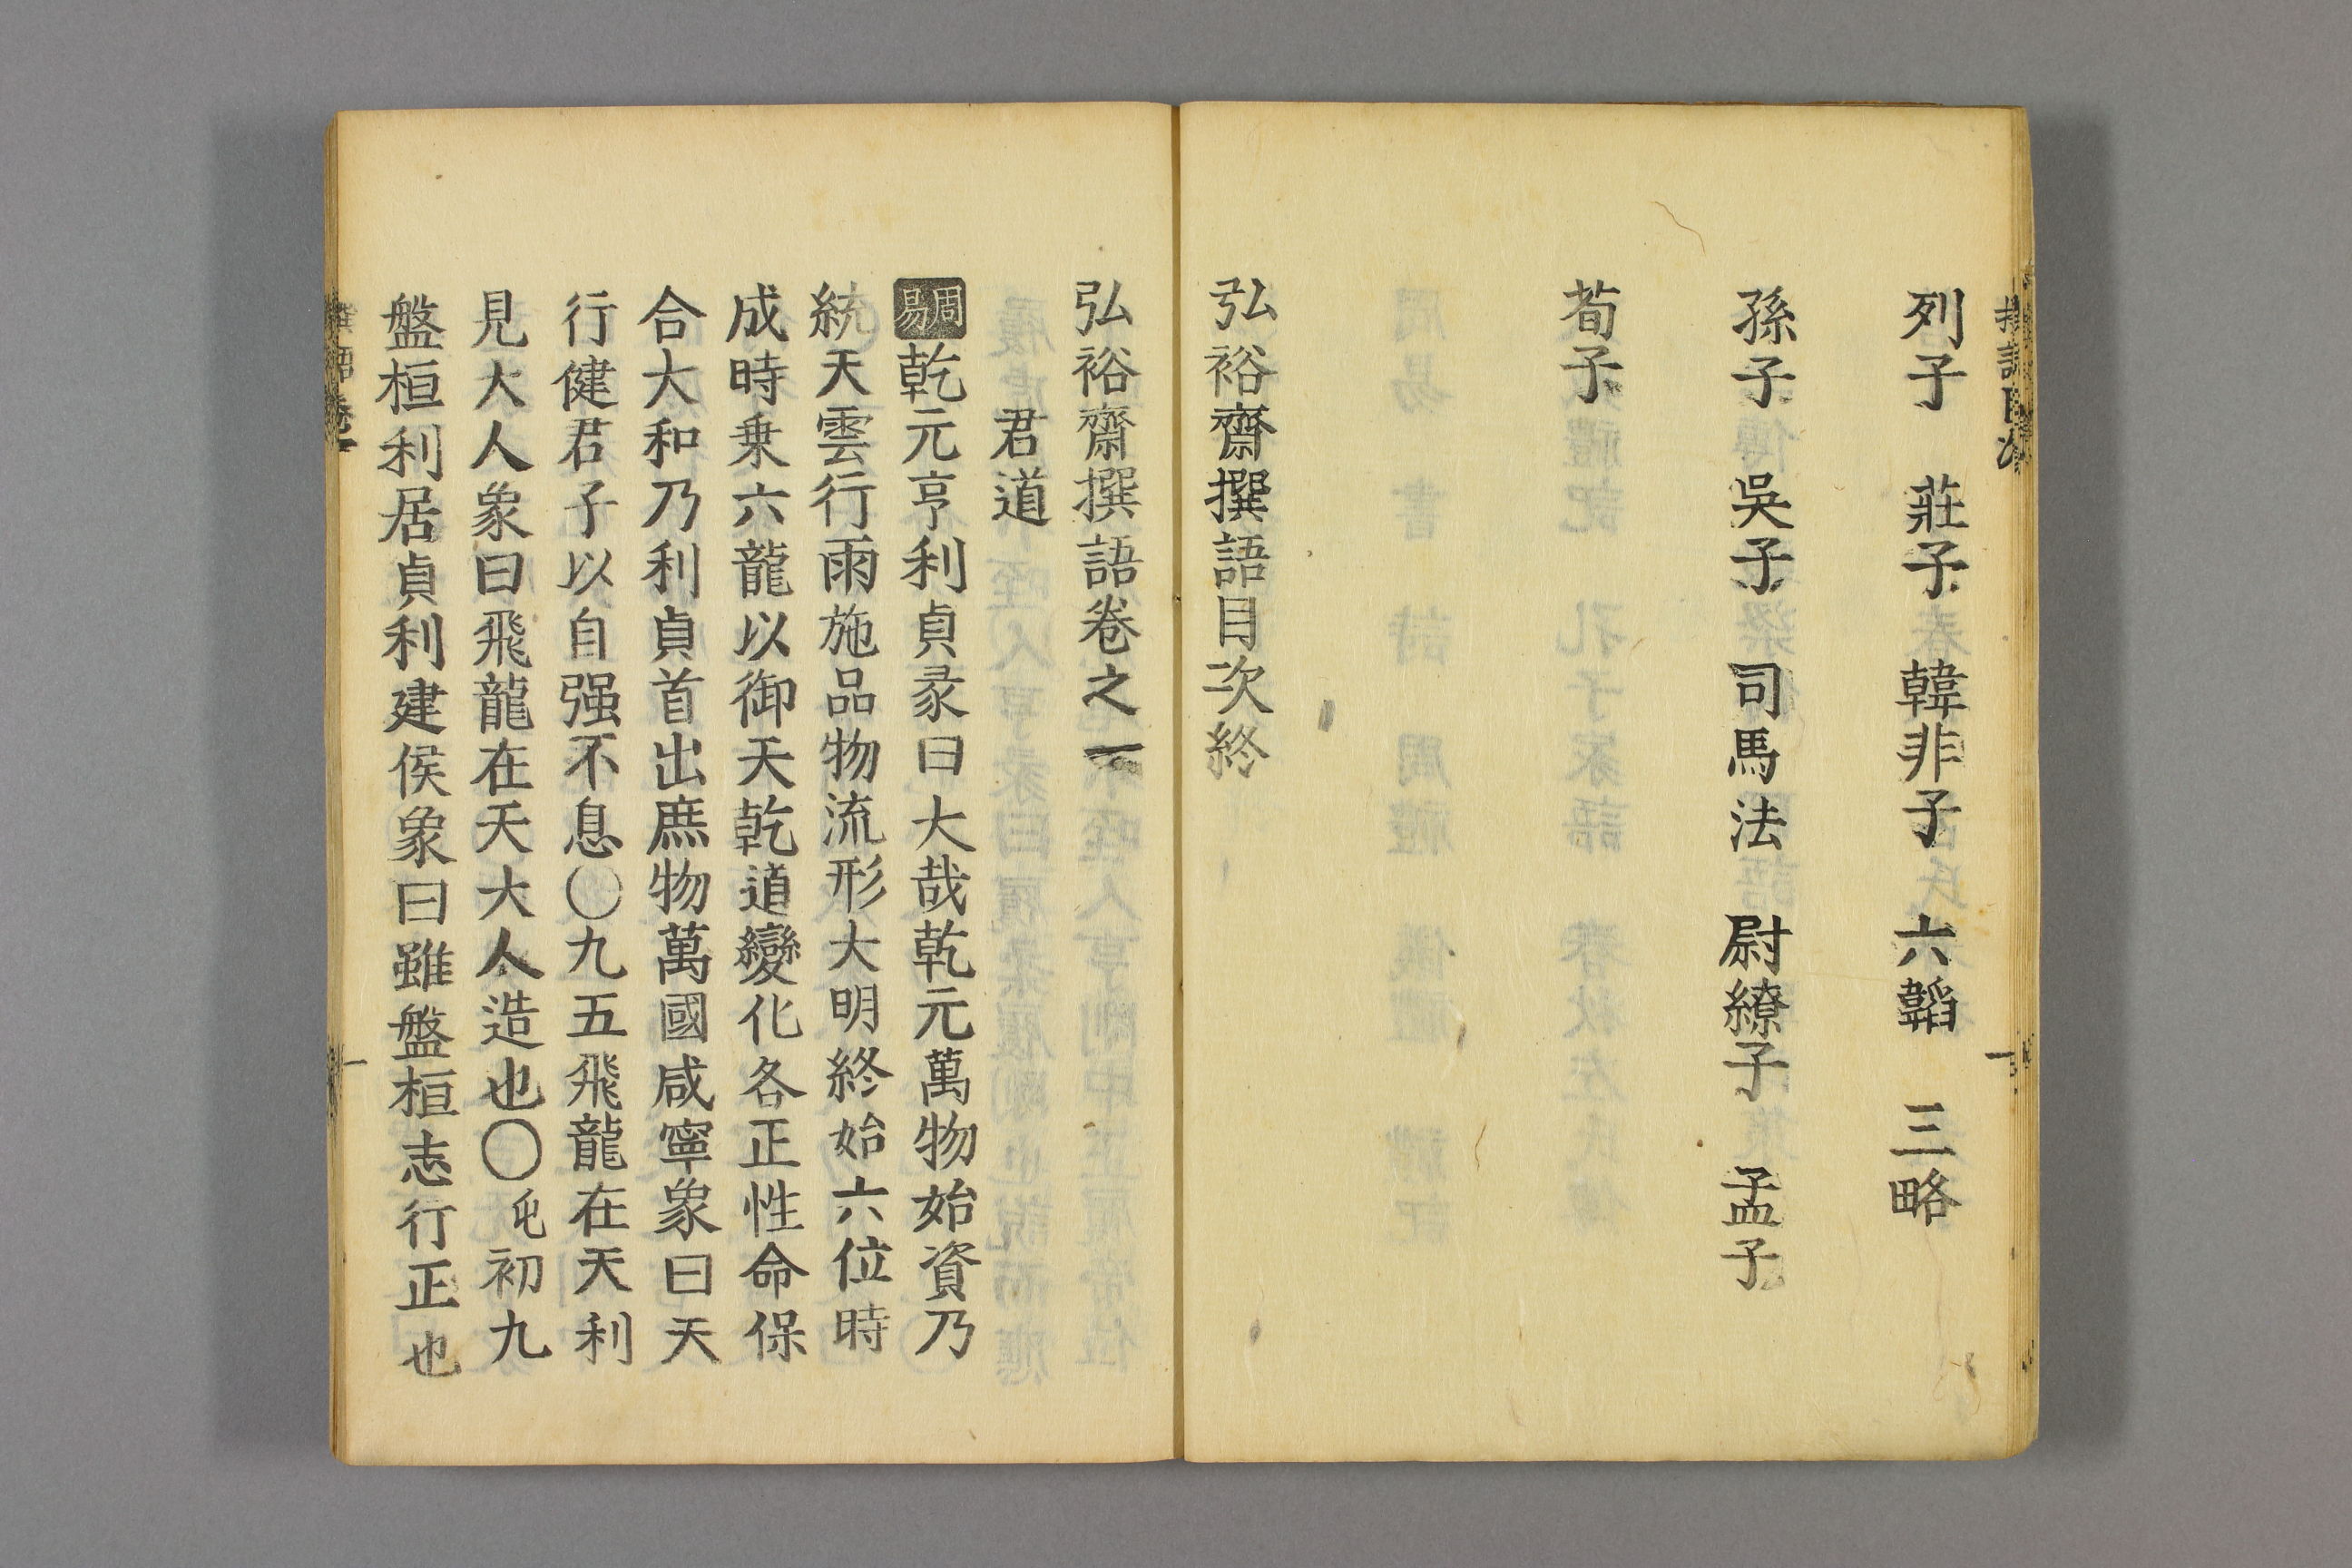 列子 莊子 韓非子 六韜 三略
孫子 吳子 司馬法 尉繚子 孟子
荀子
弘裕齋撰語目次終
弘裕齋撰語卷之一
君道
周易乾元亨利貞彖曰大哉乾元萬物始資乃
統天雲行雨施品物流形大明終始六位時
成時乗六龍以御天乾道變化各正性命保
合大和乃利貞首出庶物萬國咸寧象曰天
行健君子以自强不息〇九五飛龍在天利
見大人象曰飛龍在天大人造也〇屯初九
盤桓利居貞利建侯象曰雖盤桓志行正也